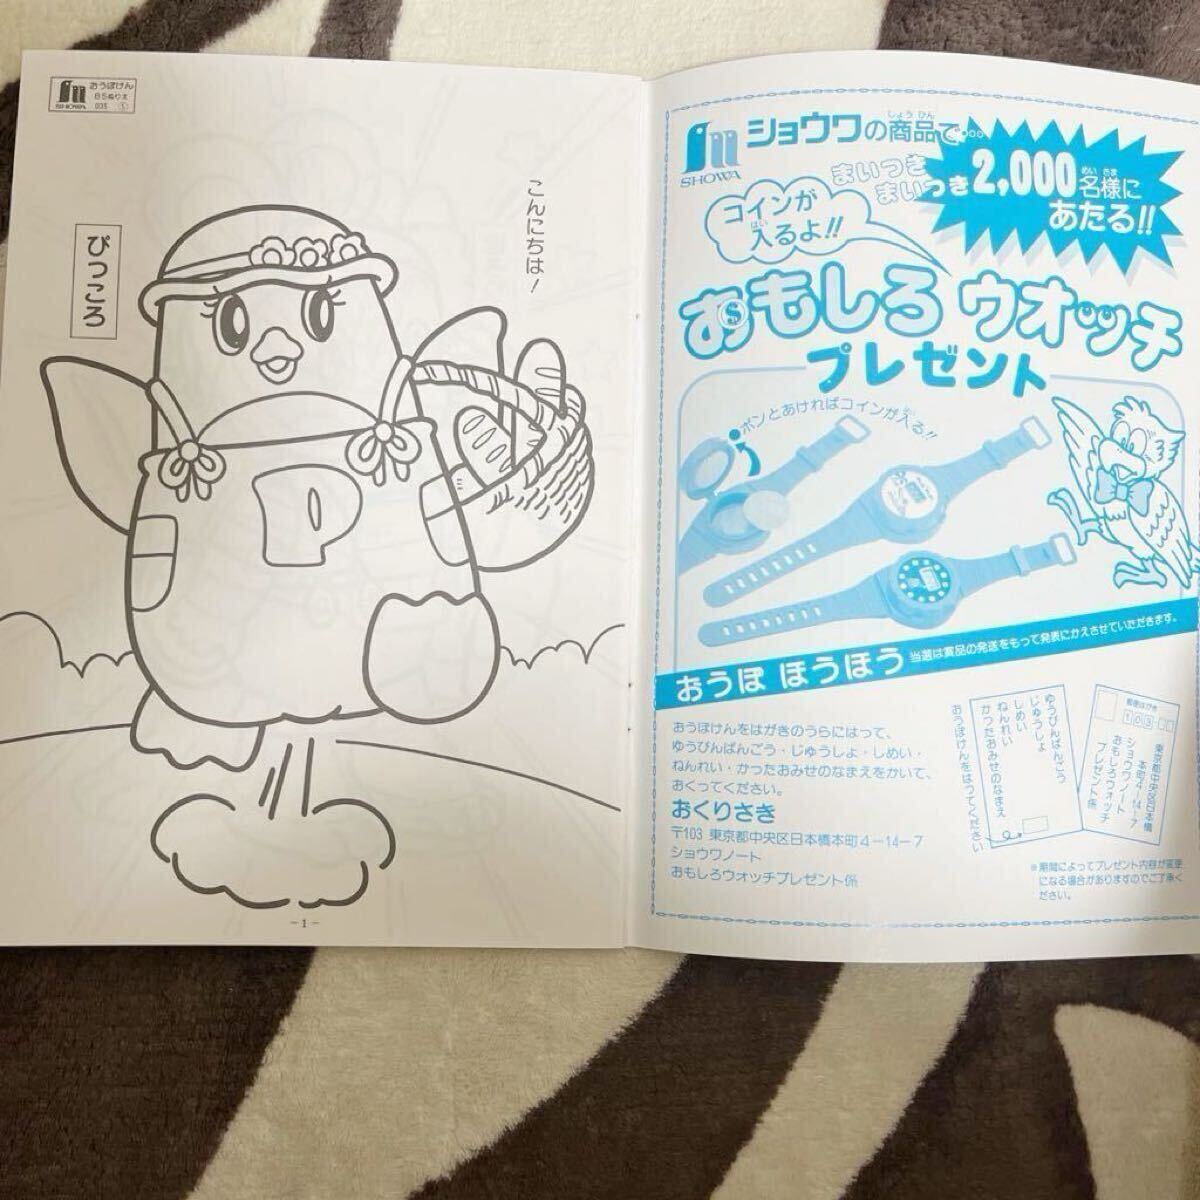 おうぼけん
B5ぬりえ
035 Ⓢ
SHOWA
こんにちは！
ぴっころ
P
－1－
SHOWA
ショウワの商品で…
しょうひん
まいつき
まいつき
2,000名様に
めいさま
あたる!!
コインが
入るよ!!
はい
おもしろウオッチ
プレゼント
ポンとあければコインが入る!!
おうぼ ほうほう 当選は賞品の発送をもって発表にかえさせていただきます。
おうぼけんをはがきのうらにはって、
ゆうびんばんごう・じゅうしょ・しめい・
ねんれい・かったおみせのなまえをかいて、
おくってください。
おくりさき
〒103 東京都中央区日本橋本町4－14－7
ショウワノート
おもしろウオッチプレゼント係
ゆうびんばんごう
じゅうしょ
しめい
ねんれい
かったおみせのなまえ
おうぼけんをはってください
郵便はがき
103
東京都中央区日本橋
本町4-14-7
ショウワノート
おもしろウオッチ
プレゼント係
※期間によってプレゼント内容が変更
になる場合がありますのでご了承く
ださい。